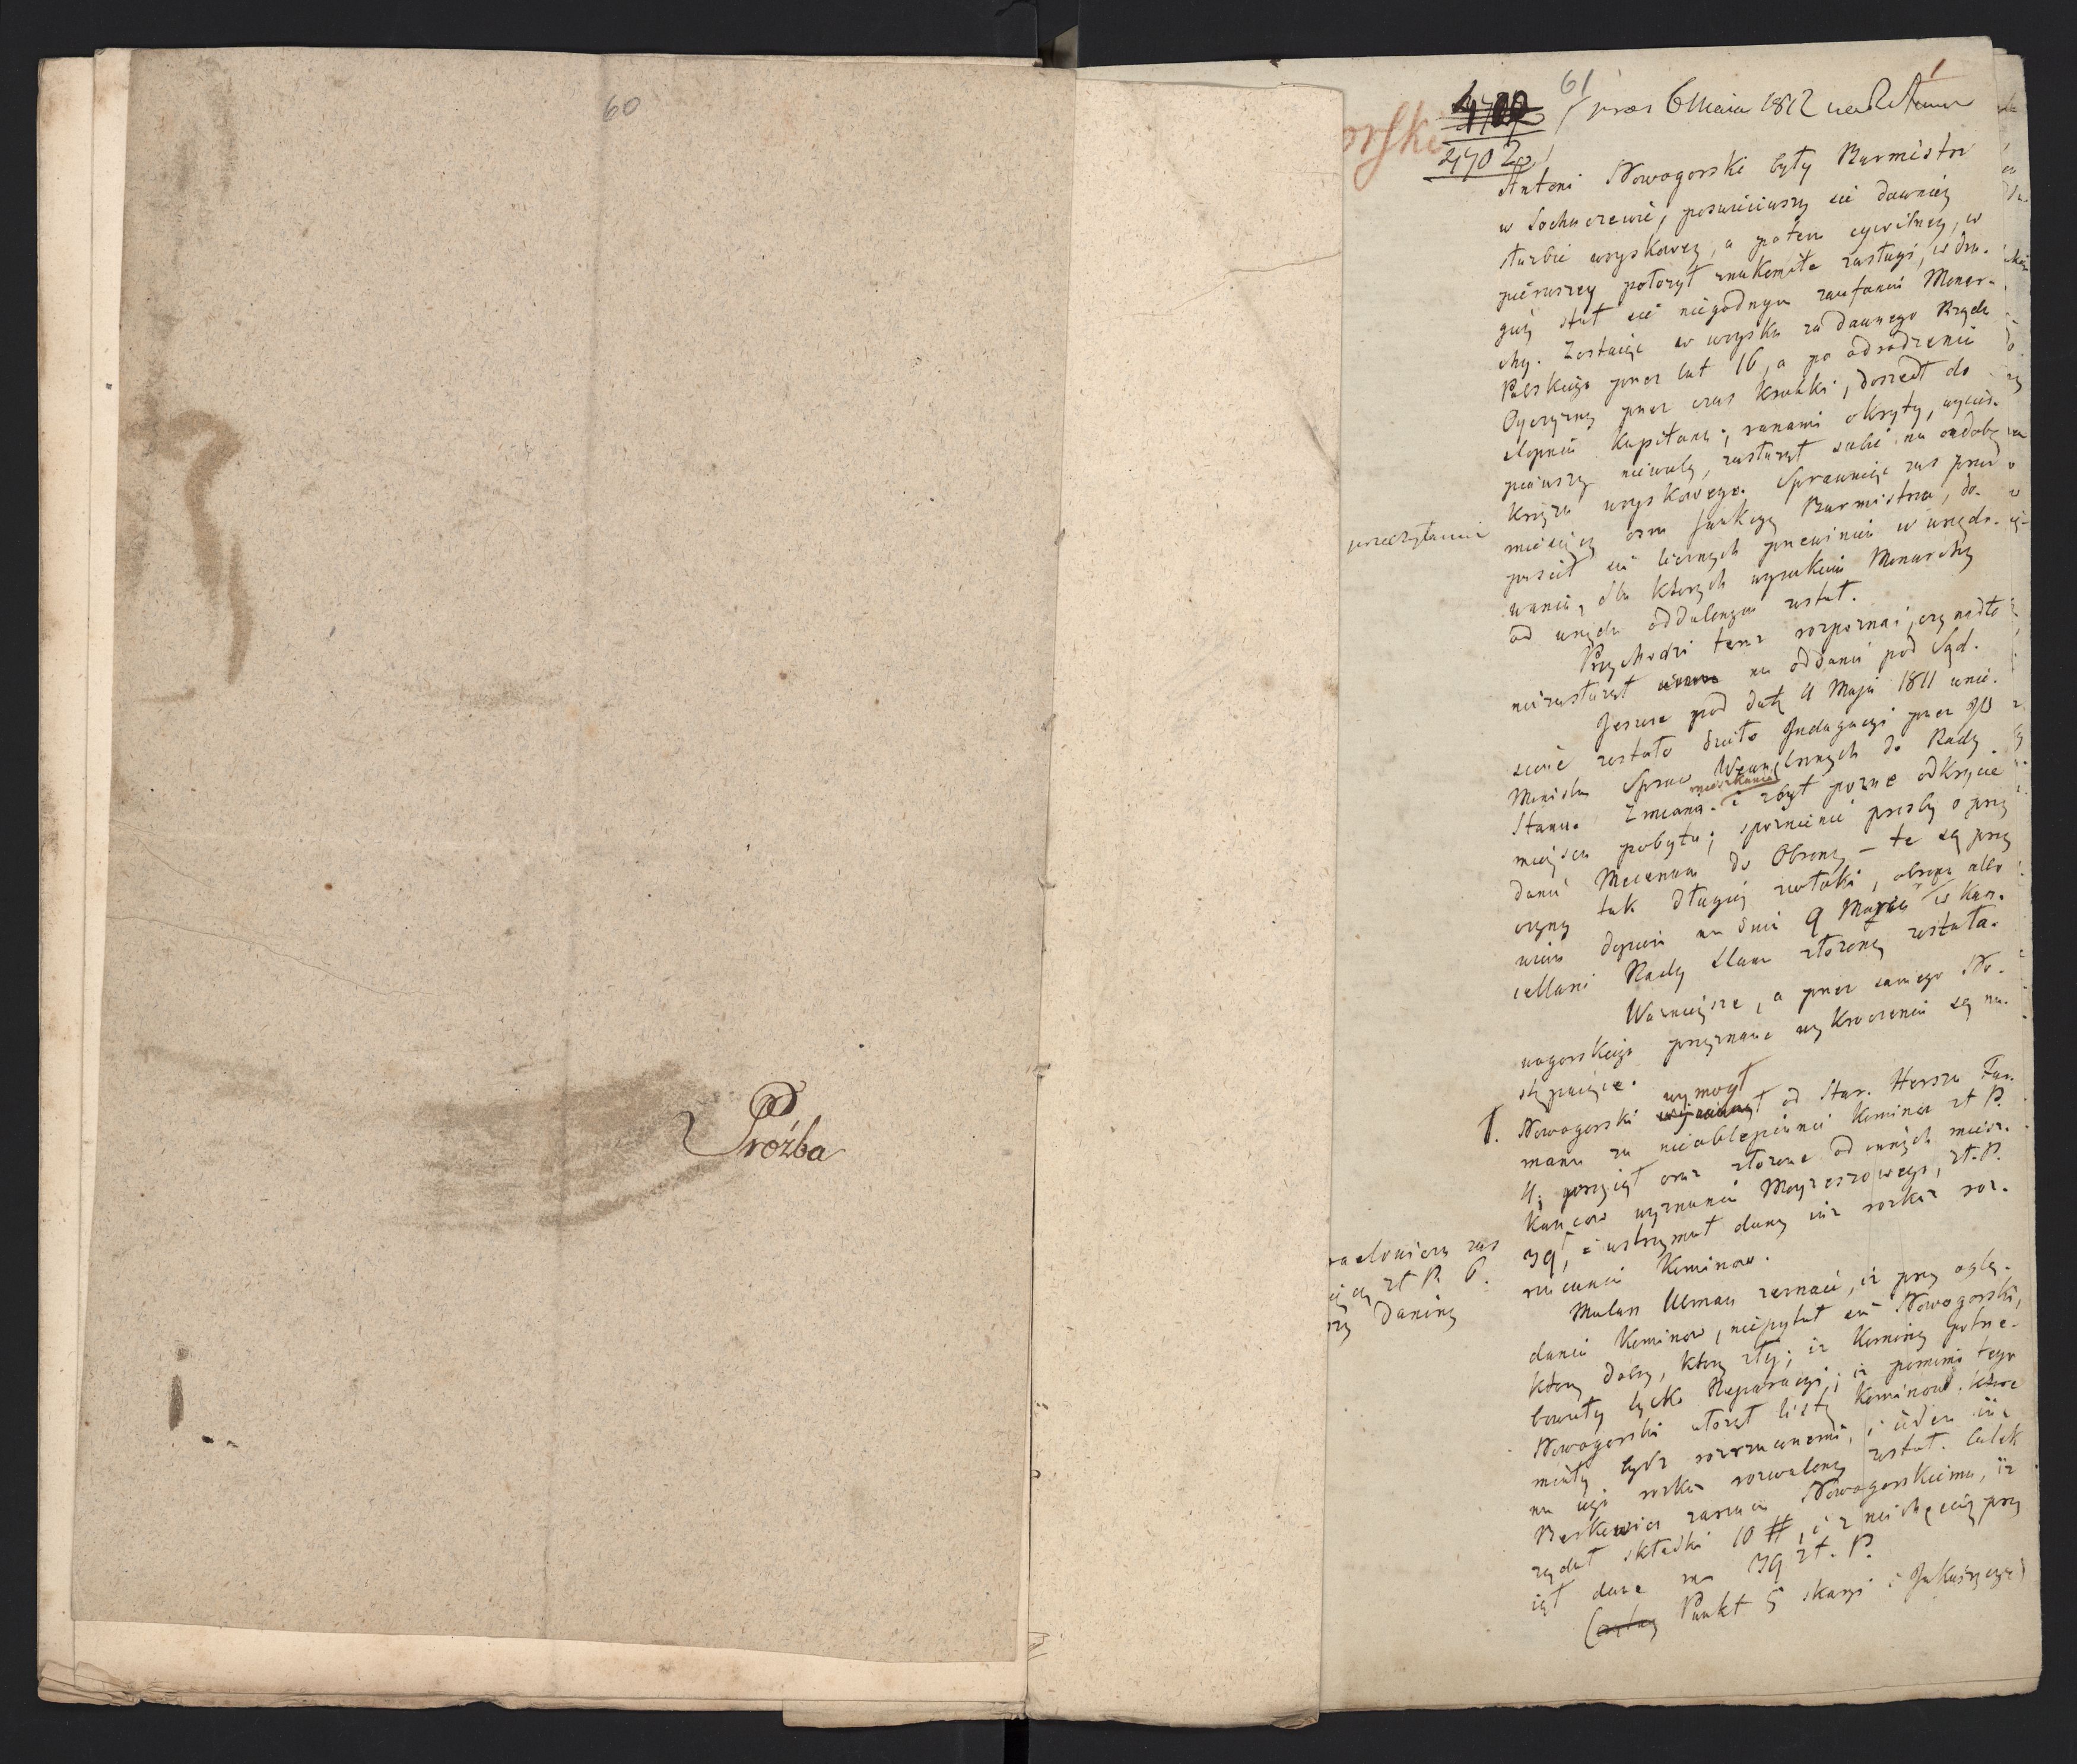 60
Próźba
61
1
orski
4702
praes 6 Maia 1812
Antoni Nowogorski były Burmistrz
w Sochaczewie, poswieciwszy sie dawniey
służbie woyskowey, a potem cywilney, w
pierwszey położył znakomite zasługi, w dru-
giey stał sie niegodnym zaufania Monar-
chy. Zostaiąc w woysku za dawnego Rządu
Polskiego przez lat 16, a po odrodzeniu
Oyczyzny przez czas krotki, doszedł do
stopnia Kapitana; ranami okryty, wycier-
piawszy niewolą, zasłużył sobie na ozdobę
Krzyża woyskowego. Sprawuiąc zas przez
miesięcy osm funkcyą Burmistrza, do-
puscił sie licznych przewinien w urzędo-
waniu, dla ktorych wyrokiem Monarchy
od urzędu oddalonym został.
przeczytanie
Przychodzi teraz rozpoznać, czy nadto
niezasłużył na oddanie pod Sąd.
Jeszcze pod datą 4 Maja 1811 wnie-
sione zostało dzieło Indagacyi przez JW
Ministra Spraw Wewnętrznych do Rady
Stanu. Zmiana mieszkania i zbyt pozne odkrycie
mieysca pobytu; spoznienie prosby o przy
danie Mecenasa do Obrony – te są przy
czyny tak długiey zwłoki, obrona albo
wiem dopiero na dniu 9 Marca w Kan-
cellarii Rady Stanu złożoną została.
Ważnieysze, a przez samego No-
wogorskiego przyznane wykroczenia są na-
stępuiące.
1. Nowogorski wymogł od Star. Hersza Fur-
mana za nieoblepienie Komina zł P.
4; przyiął oraz złożone od innych miesz-
kancow wyznania Moyżeszowego, zł. P.
39, i wstrzymał dany iuż rozkaz roz-
rzucania Kominow.
zł P. 6.
Daniny
Mularz Ulman zeznaie, iż przy oglą-
daniu Kominow, niepytał sie Nowogorski,
ktory dobry, ktory zły; iż Kominy potrze-
bowały tylko Reparacyi; iż pomimo tego
Nowogorski ułożył listę Kominow ktore
miały bydz rozrzuconemi, i ieden iuż
na iego rozkaz rozwalony został. Całek
Berkowicz zarzuca Nowogorskiemu, iż
żądał składki 10 #, i z niechęcią przy
iął dane mu 39 zł. P.
Punkt 5 skargi i Indagacyi)